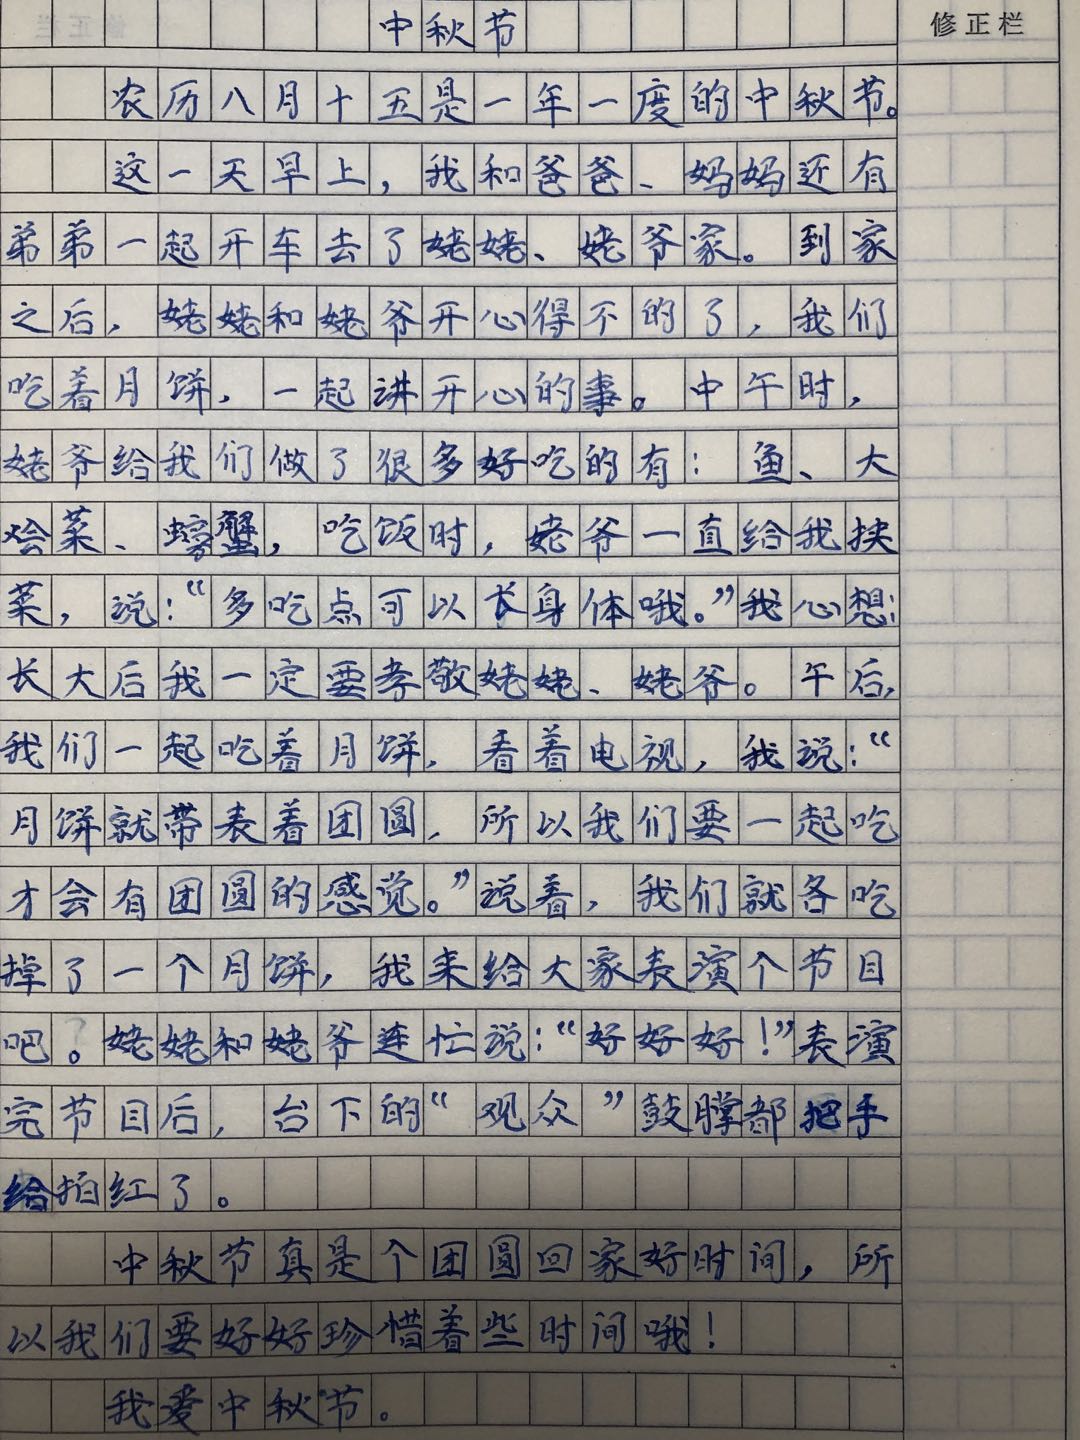 中秋节
修正栏
农历八月十五是一年一度的中秋节。
这一天早上，我和爸爸、妈妈还有
弟弟一起开车去了姥姥、姥爷家。到家
之后，姥姥和姥爷开心得不的了，我们
吃着月饼，一起讲开心的事。中午时，
姥爷给我们做了很多好吃的有：鱼、大
烩菜、螃蟹，吃饭时，姥爷一直给我挟
菜，说：“多吃点可以长身体哦。”我心想：
长大后我一定要孝敬姥姥、姥爷。午后，
我们一起吃着月饼，看着电视，我说：“
月饼就带表着团圆，所以我们要一起吃
才会有团圆的感觉。”说着，我们就各吃
掉了一个月饼，我来给大家表演个节目
吧。姥姥和姥爷连忙说：“好好好！”表演
完节目后，台下的“观众”鼓膛都把手
给拍红了。
中秋节真是个团圆回家好时间，所
以我们要好好珍惜着些时间哦！
我爱中秋节。